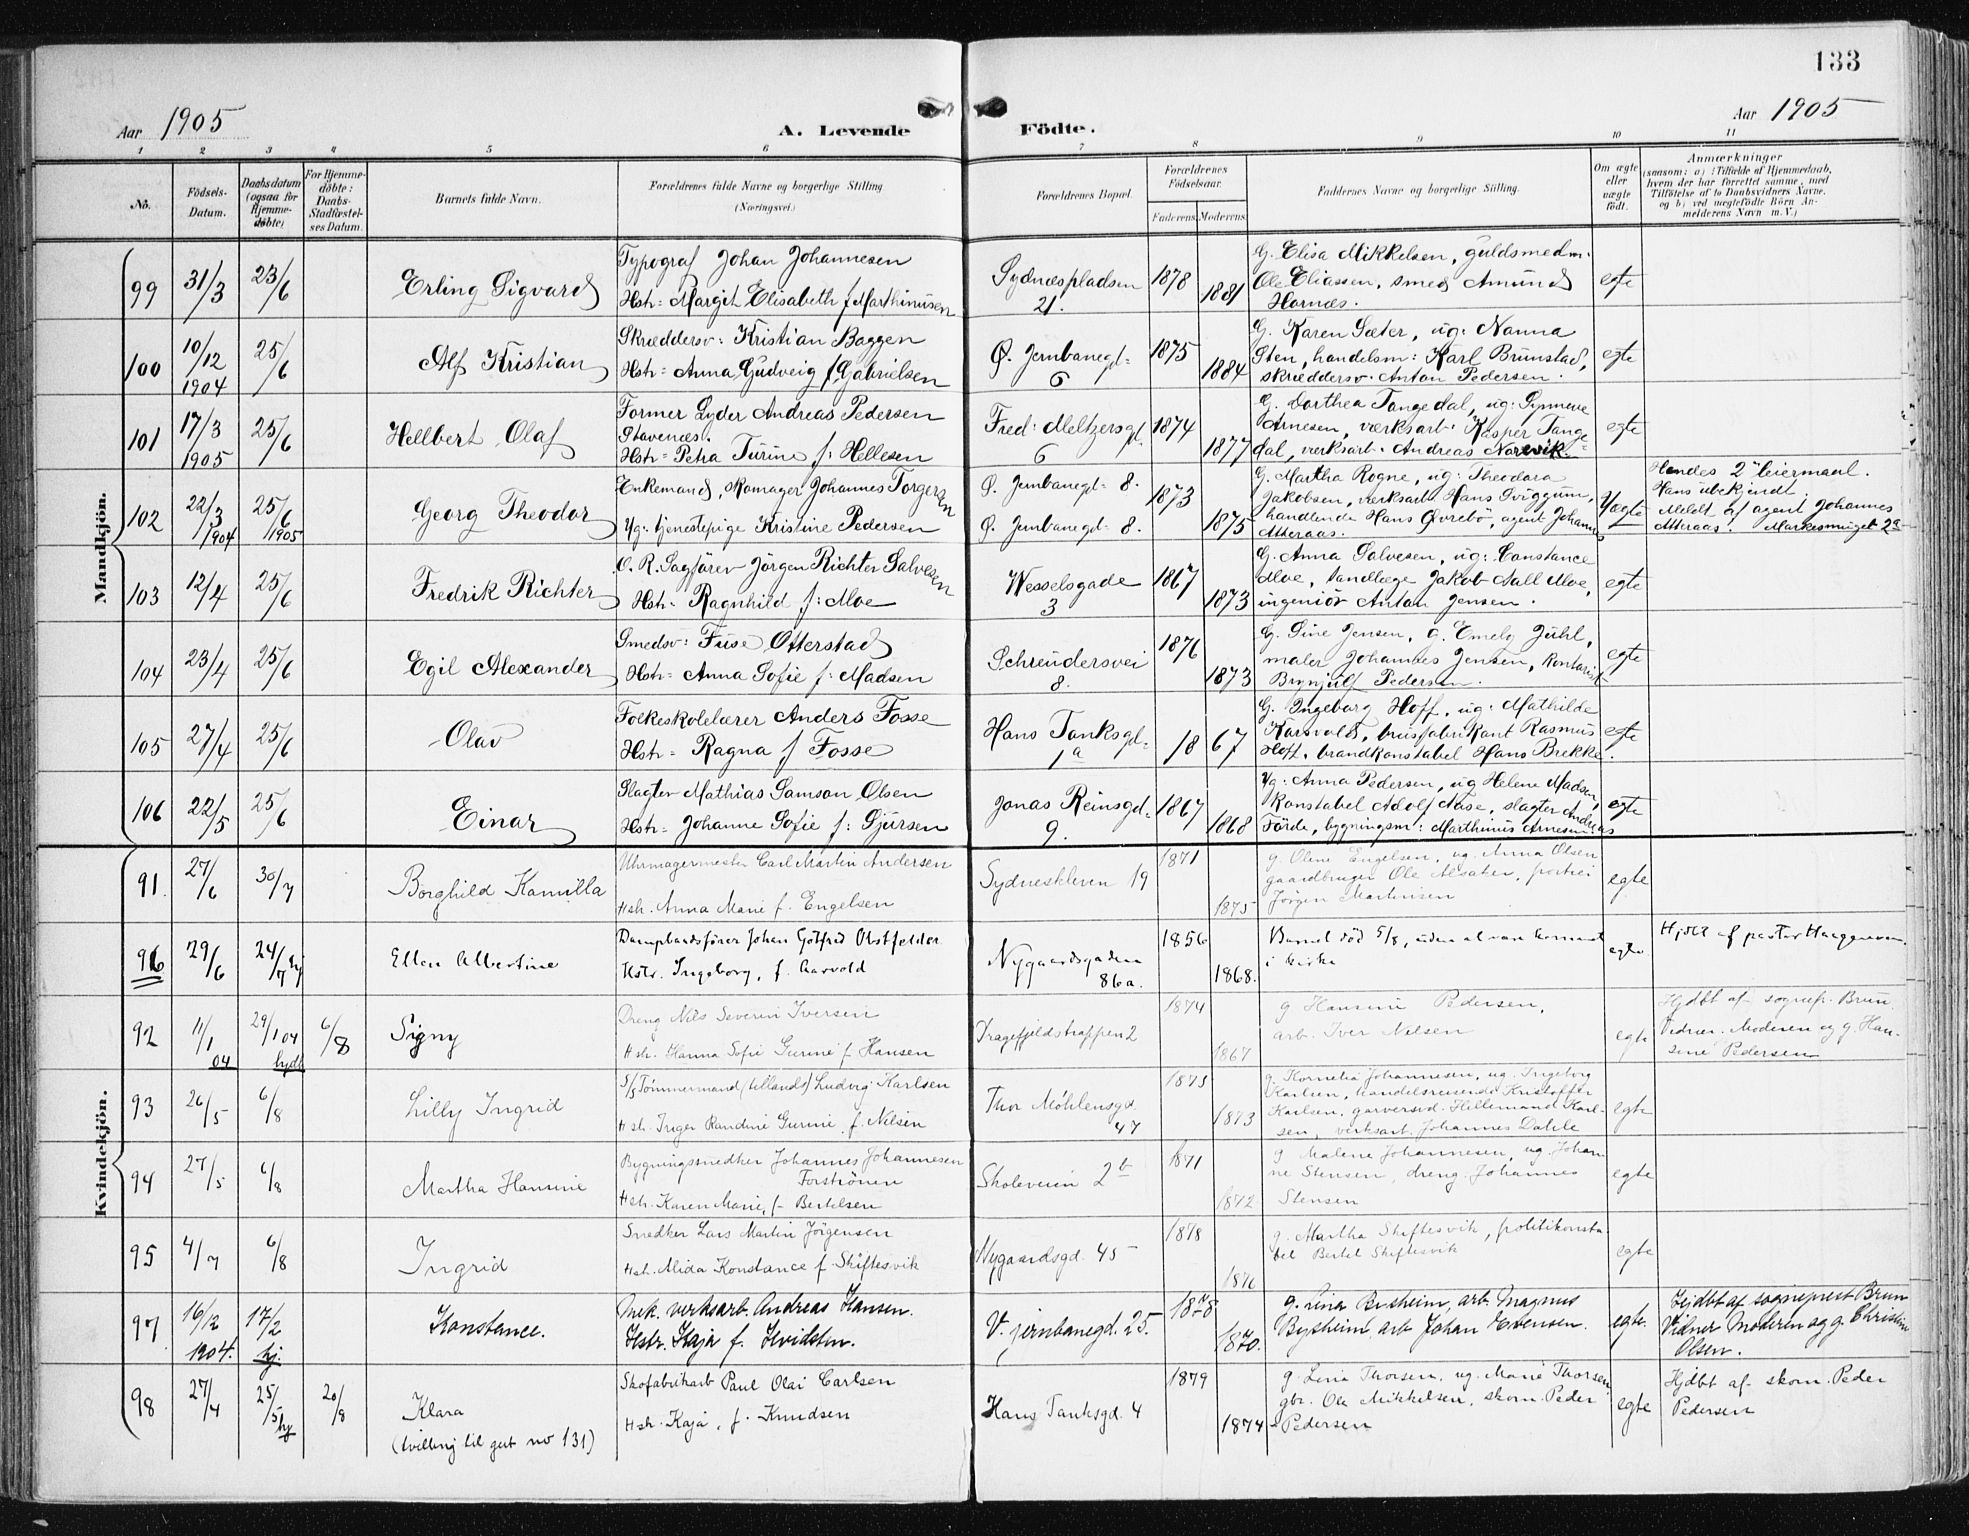 133
Aar 1905
A. Levende Födte.
Aar 1905
1 2 3 4 5 6 7 8 9 10 11
No.
Födsels-
Datum.
Daabsdatum
(ogsaa for
Hjemme-
döbte)
For Hjemme-
döbte:
Daabs-
Stadfæstel-
ses Datum.
Barnets fulde Navn.
Forældrenes fulde Navne og borgerlige Stilling
(Næringsvei.)
Forældrenes Bopæl.
Forældrenes
Födselsaar.
Faderens. Moderens.
Faddernes Navne og borgerlige Stilling.
Om ægte
eller
uægte
födt.
Anmærkninger
(saasom: a) i Tilfælde af Hjemmedaab,
hvem der har forrettet samme, med
Tilföielse af to Daabsvidners Navne,
og b) ved uægtefödte Börn An-
melderens Navn m. V.)
Mandkjön.
99 31/3 23/6 Erling Sigvard
Typograf Johan Johannesen
Hstr: Margit Elisabeth f. Marthinusen
Sydnæspladsen
21.
1878 1881
G. Elisa Mikkelsen, guldsmedm.
Ole Eliassen, smed Amund
Hornæs.
egte
100 10/12
1904
25/6
Alf Kristian
Skræddersv: Kristian Baggen
Hstr: Anna Gudveig f. Gabrielsen
Ø. Jernbanegd:
6
1875 1884
G. Karen Sæter, ug: Nanna
Sten, handelsm: Karl Brunstad,
skræddersv. Anton Pedersen.
egte
101 17/3
1905
25/6
Hellbert Olaf
Former Lyder Andreas Pedersen
Stavenæs.
Hstr: Petra Turine f: Hellesen
Fred: Meltzersgd.
6
1874 1877
G. Dorthea Tangedal, ug: Synneve
Arnesen, værksarb: Kasper Tange-
dal, værksarb. Andreas Norevik.
egte
102 22/3
1904
25/6
1905
Georg Theodor
Enkemand, Skomager Johannes Torgersen
Ug: tjenestepige Kristine Pedersen
Ø. Jernbanegd: 8.
Ø. Jernbanegd: 8.
1873 1875
G. Martha Rogne, ug: Theodora
Jakobsen, værksarb: Hans Sviggum,
handlende Hans Øvrebö, agent Johannes
Atteraas.
Uægte
Hendes 2det leiermaal.
Hans ubekjendt.
Meldt af agent Johannes
Atteraas. Markesmuget 2a
103 12/4 25/6 Fredrik Richter
O. R. Sagförer Jörgen Richter Salvesen
Hstr: Ragnhild f: Moe
Wesselsgade
3
1867 1873
G. Anna Salvesen, ug: Constance
Moe, tandlæge Jakob Aall Moe,
ingeniör Anton Jensen.
egte
104 23/4 25/6 Egil Alexander
Smedsv: Fuse Otterstad
Hstr: Anna Sofie f: Madsen
Schreudersvei
8.
1876 1873
G. Sine Jensen, G. Emely Juhl,
maler Johannes Jensen, kontorist
Brynjulf Pedersen.
egte
105 27/4 25/6 Olav
Folkeskolelærer Anders Fosse
Hstr: Ragna f Fosse
Hans Tanksgd:
1a
1867
G. Ingeborg Hoff, ug: Mathilde
Karsvold, brusfabrikant Rasmus
Hoff, brandkonstabel Hans Brekke.
egte
106 22/5 25/6 Einar
Slagter Mathias Samson Olsen
Hstr: Johanne Sofie f: Gjursen
Jonas Reinsgd:
9.
1867 1868
Ug: Anna Pedersen, ug Helene Madsen,
konstabel Adolf Aase, slagter Andreas
Förde, bygningsm: Marthinus Arnesen
egte
Kvindekjön.
91. 27/6 30/7 Borghild Kamilla
Uhrmagermester Carl Martin Andersen
Hstr. Anna Marie f. Engelsen
Sydneskleven 19
1871 1875
g. Oline Engelsen, ug. Anna Olsen
gaardbruger Ole Alsaker, portier
Jörgen Martinsen
egte
96 29/6 24/7 hj
Ellen Albertine
Dampbaadsförer Johan Gotfred Obstfelder
Hstr. Ingeborg, f. Aarvold
Nygaardsgaden
86a.
1856 1868.
Barnet död 5/8, uden at være kommet
i kirke
egte
Hjdbt af pastor
92 11/1
04
29/1 04
hjdt
6/8
Signy
Dreng Nils Severin Iversen
Hstr. Hanna Sofie Gurine f. Hansen
Dragefjeldstrappen 2
1874 1867
g Hansine Pedersen,
arb. Iver Nilsen
egte
Hjdbt af sognepr. Brun
Vidner. Moderen og g. Han-
sine Pedersen
93 26/5 6/8 Lilly Ingrid
Tömmermand (Udlands) Ludvig Karlsen
Hstr. Inger Randine Gurine, f. Nilsen
Thor Möhlensgd.
47
1873 1873
g. Kornelia Johannesen, ug. Ingeborg
Karlsen, handelsreisende Kristoffer
Karlsen, garversvd. Hillemand Karl-
sen, verksarb. Johannes Dahle
egte
94 27/5 6/8 Martha Hansine
Bygningssnedker Johannes Johannesen
Forströnen
Hstr. Karen Marie, f- Bertelsen
Skoleveien 2b
1871 1872
g Malene Johannesen, ug. Johan-
ne Stensen, dreng. Johannes
Stensen
egte
95 4/7 6/8 Ingrid
Snedker Lars Martin Jörgensen
Hstr. Alida Konstance f. Skiftesvik
Nygaardsgd. 45
1878 1876
g. Martha Skiftesvik, politikonsta-
bel Bertel Skiftesvik
egte
97 16/12
1904.
17/2
hj.
Konstance.
Mek. verksarb. Andreas Hansen.
Hstr. Kaja f. Hvidsten.
V. jernbanegd. 25.
1878 1870.
g. Lina Bysheim, arb. Magnus
Bysheim, arb Johan Evensen.
egte.
Hjdbt af sogneprest Brun
Vidner Moderen og g. Christine
Olsen.
98 27/4 25/5 hj 20/8
Klara
(tvilling til gut no 131)
Skofabrikarb Paul Olai Carlsen
Hstr. Kaja, f. Knudsen
Hans Tanksgd. 4
1879 1874
g. Lina Thorsen, ug. Marie Thorsen
gbr. Ole Mikkelsen, skom. Peder
Pedersen
egte
Hjdbt af skom. Peder
Pedersen